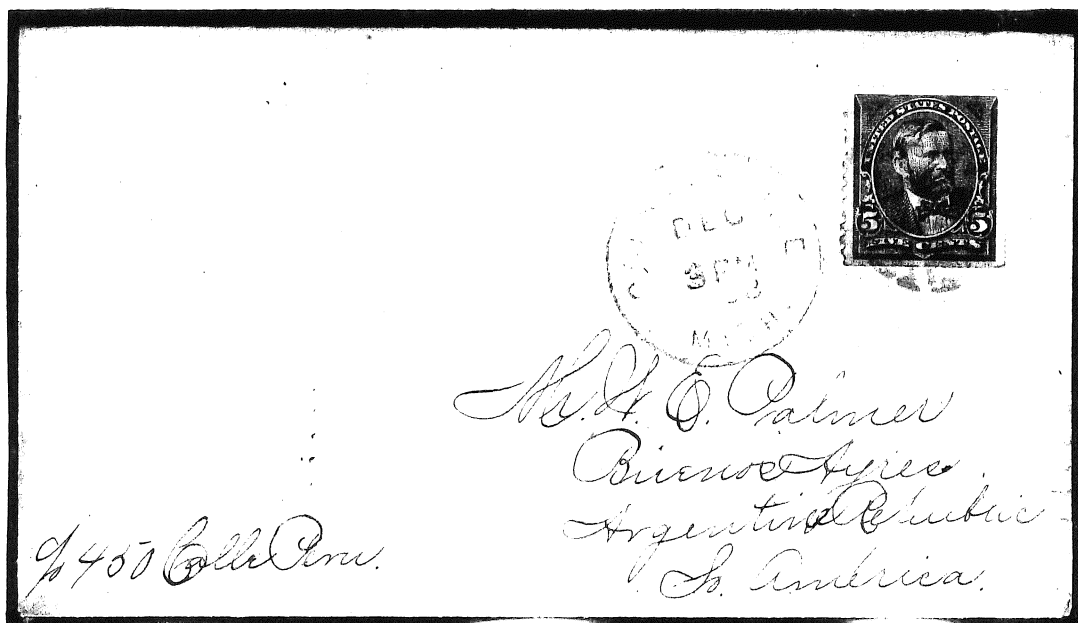 UNITED STATES POSTAGE
5 5
FIVE CENTS
DEC
3 PM
MICH.
Mr. W. E. Palmer
Buenos Ayres
Argentine Republic
So. America.
c/o 450 Calle Peru.